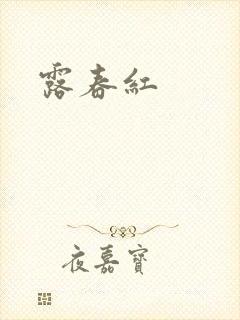 露春紅
夜嘉寶